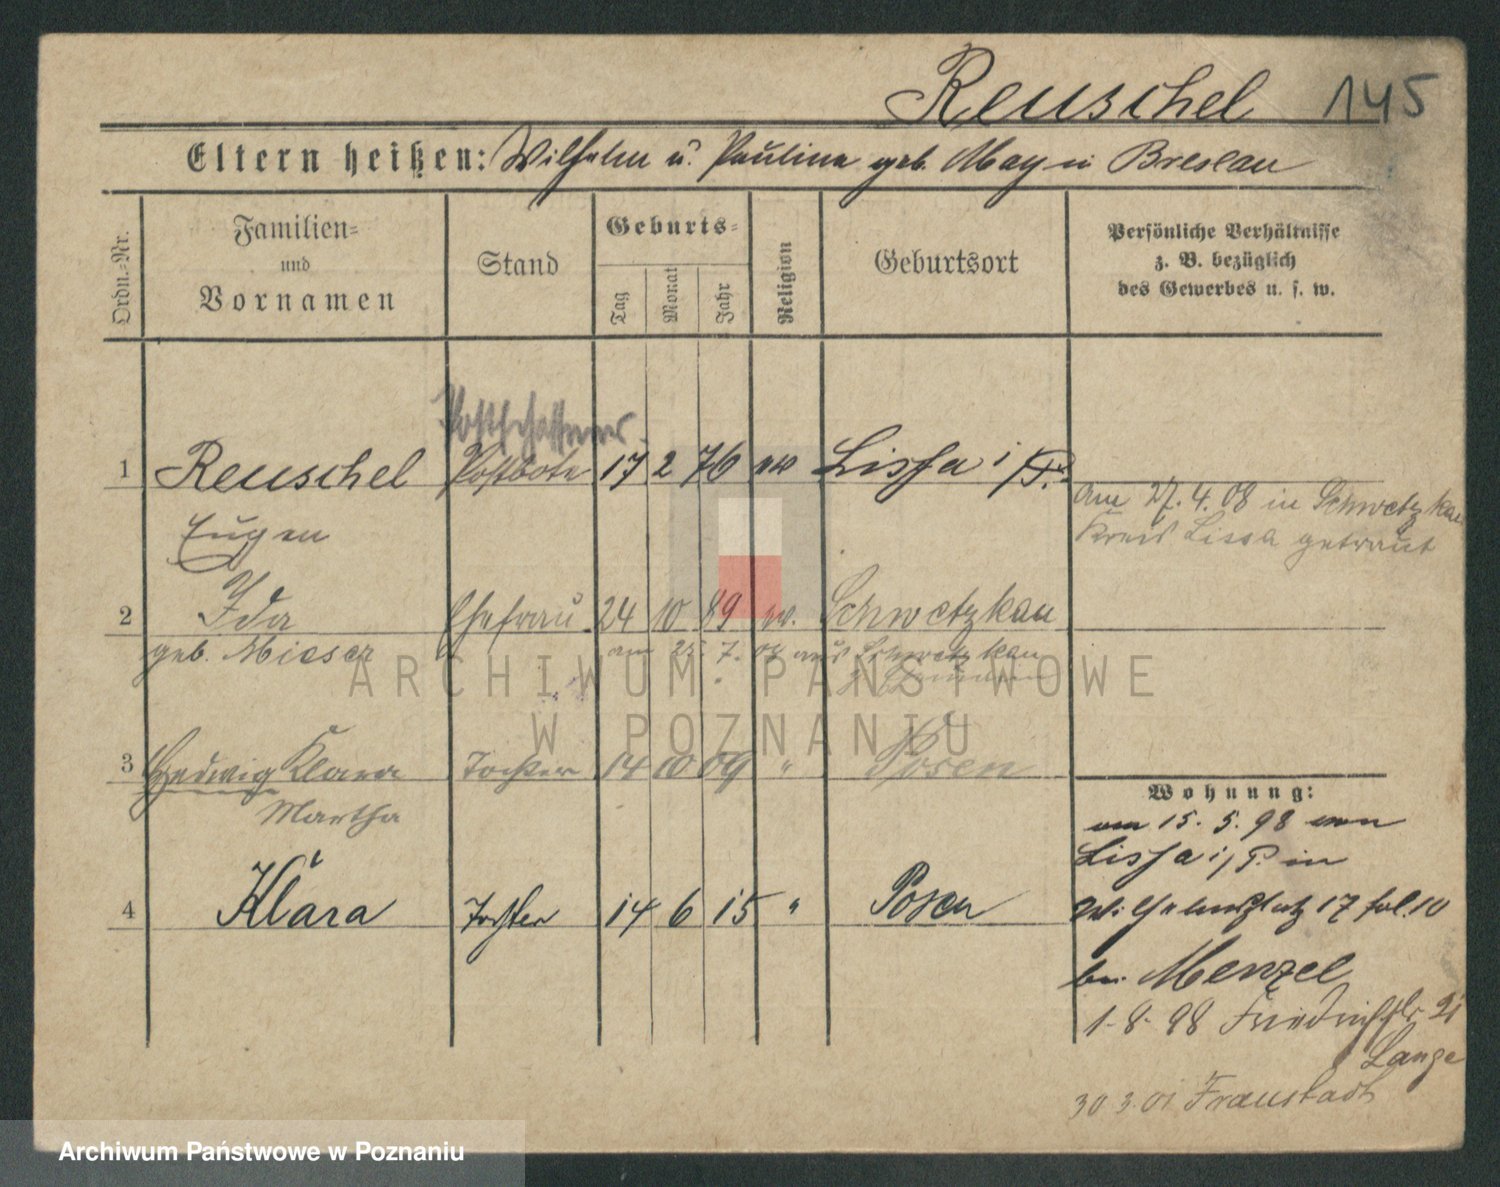 Reuschel 145
Eltern heißen: Wilhelm u. Pauline geb. May in Breslau
Ordn.-Nr.
Familien-
und
Vornamen
Stand
Geburts-
Tag
Monat
Jahr
Religion
Geburtsort
Persönliche Verhältnisse
z. B. bezüglich
des Gewerbes u. s. w.
Postschaffner
1 Reuschel Postbote 17 2 76 ev Lissa i/P.
Eugen
am 27.4.08 in Schwetzkau
Kreis Lissa getraut
2 Ida Ehefrau 24 10 89 ev. Schwetzkau
geb. Mieser am 25. 7. 08 aus Schwetzkau
3 Hedwig Klara Tochter 14 10 09 " Posen
Martha
4 Klara Tochter 14 6 15 " Posen
Wohnung:
am 15. 5. 98 von
Lissa i/P. in
Wilhelmsplatz 17 fol. 10
bei Menzel
1-8-98 Friedrichstr. 21
Lange
30 3. 01 Fraustadt
ARCHIWUM PAŃSTWOWE
W POZNANIU
Archiwum Państwowe w Poznaniu